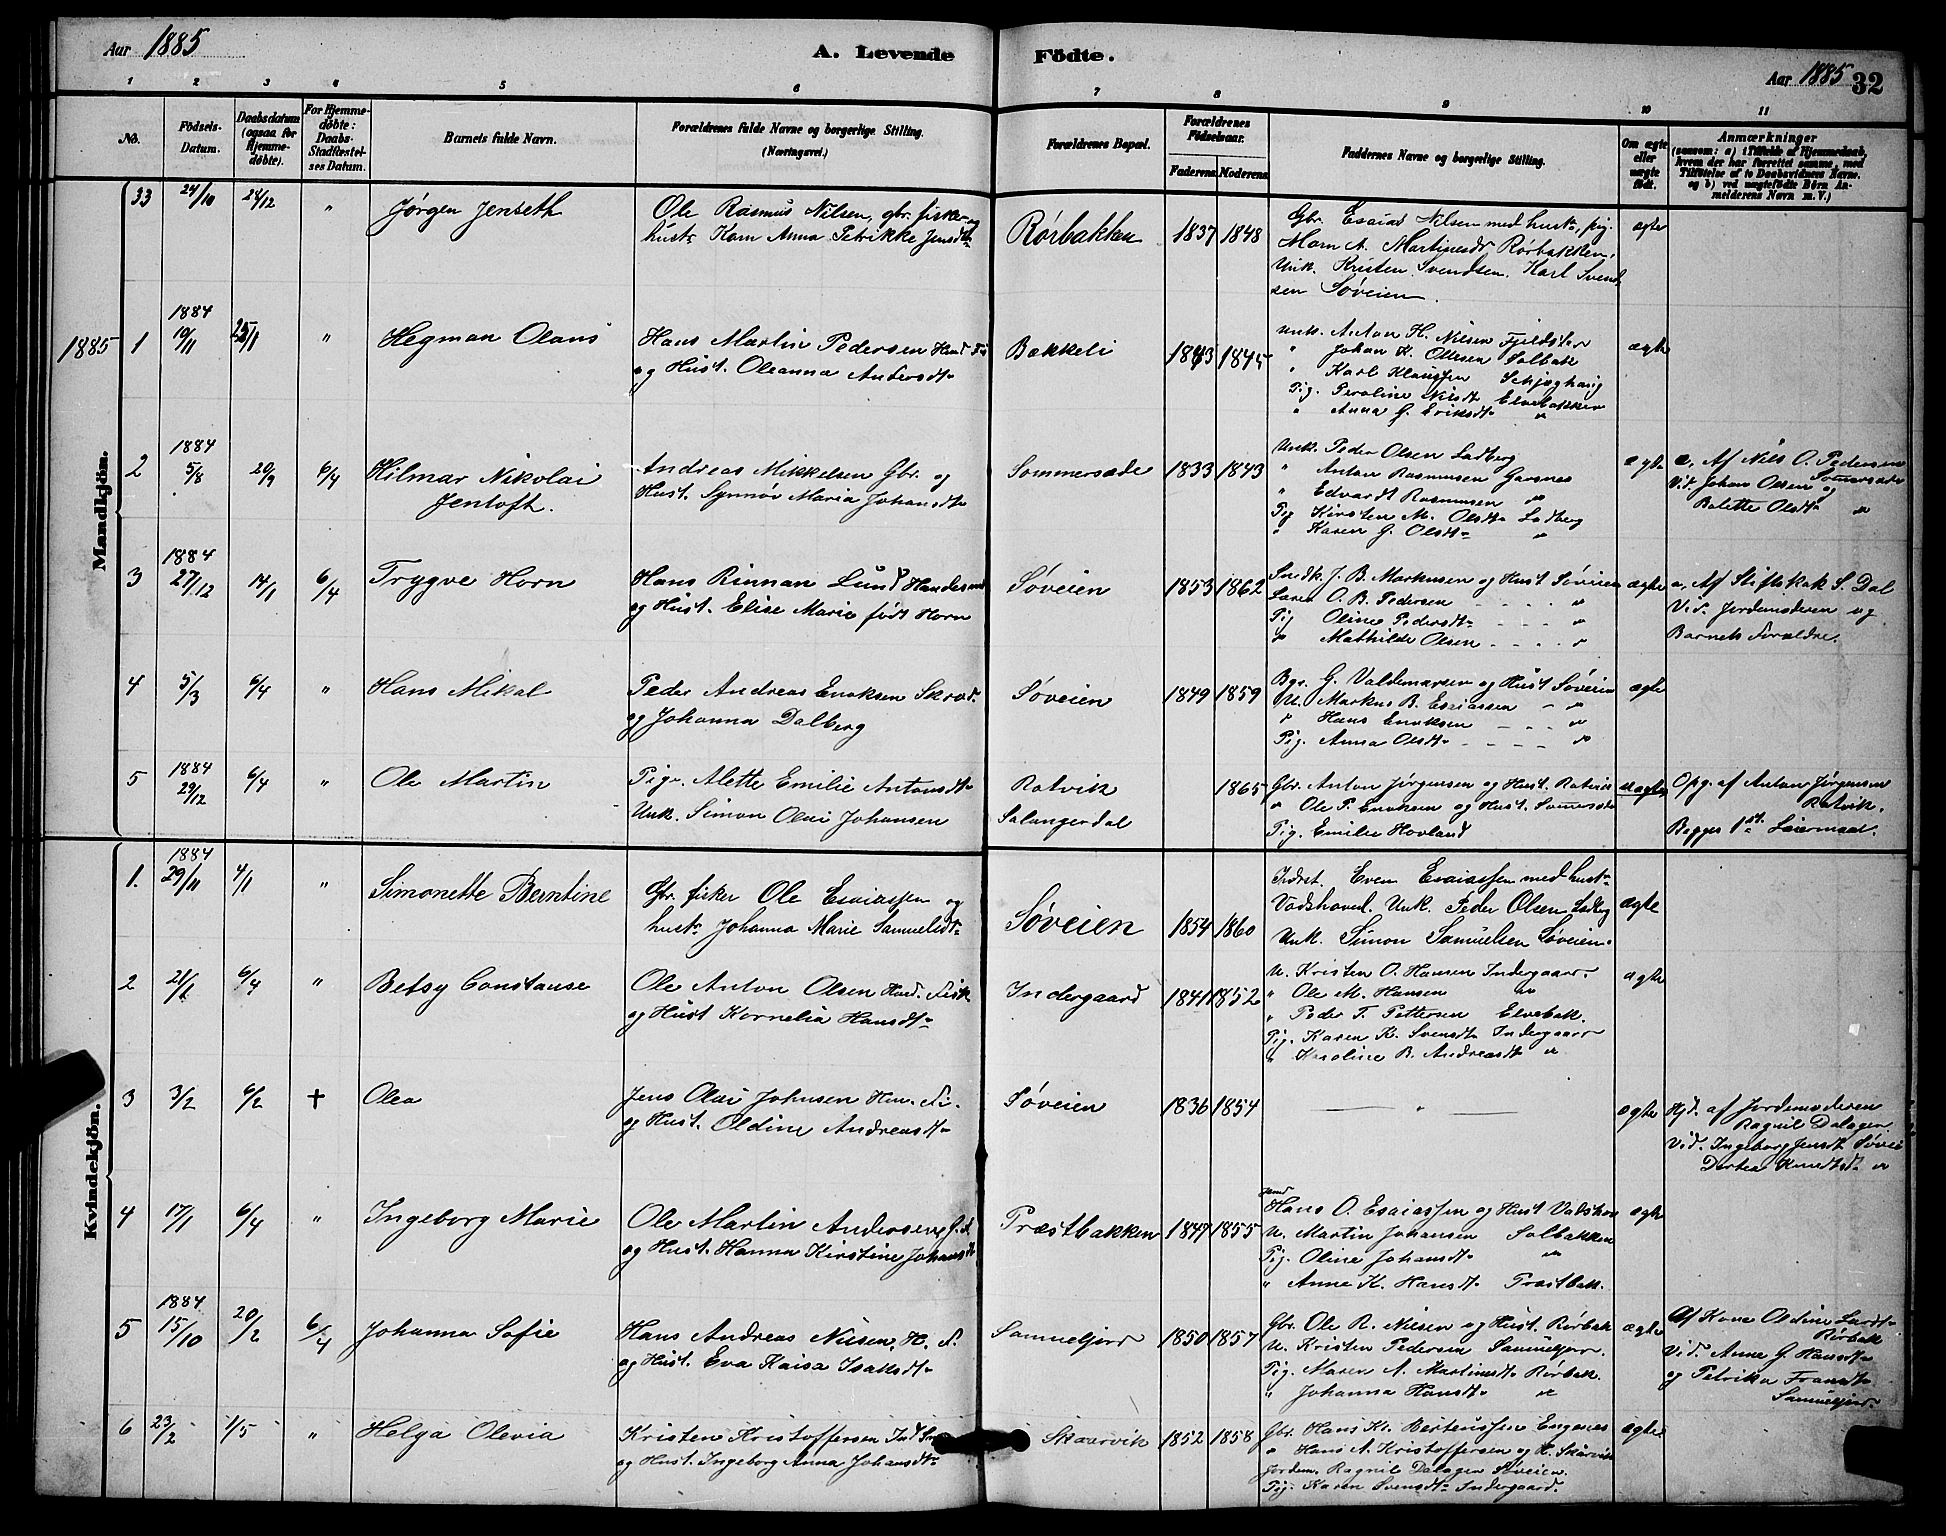 Aar 1885
A. Levende Födte.
Aar 1885 32
1 2 3 4 5 6 7 8 9 10 11
No.
Födsels-Datum.
Daabsdatum (ogsaa for Hjemme-döbte).
For Hjemme-döbte: Daabs-Stadfæstelses Datum.
Barnets fulde Navn.
Forældrenes fulde Navne og borgerlige Stilling.
(Næringsvei.)
Forældrenes Bopæl.
Forældrenes Födselsaar.
Faderens. Moderens.
Faddernes Navne og borgerlige Stilling.
Om ægte eller uægte födt.
Anmærkninger
(saasom: a) i Tilfælde af Hjemmedaab, hvem der har forrettet samme, med Tilföielse af to Daabsvidners Navne. og b) ved uægtefödte Börn Anmelderens Navn m. V.)
Mandkjön.
33 24/10 24/12 " Jørgen Jenseth
Ole Rasmus Nilsen, gbr. fisker og
hustr. Karn Anna Petrikke Jensdtr
Rørbakken 1837 1848
Gbr. Esaias Nilsen med hustr., pig.
Marn A. Martinesdr Rørbakken,
Unk. Kristen Svendsen. Karl Svend
sen Søveien.
ægte
1885 1 1884 19/11 25/1 " Hegman Olaus
Hans Martin Pedersen Hmd Fi
og Hust. Oleanna Andersdtr
Bakkeli 1843 1845
Unk. Anton H. Nilsen Fjeldstør
" Johan K. Ottesen Solbak
" Karl Klaussen
Pig. Peroline Nilsdt Elvebakken
" Anna G. Eriksdtr "
ægte
2 1884 5/8 20/9 6/4 Hilmar Nikolai
Jentoft.
Andreas Mikkelsen Gbr. og
Hust. Synnøv Maria Johansdtr
Sommersæde 1833 1843
Unk. Peder Olsen Ladberg
" Anton Rasmussen Garsnes
" Edvardt Rasmussen "
Pig Kirsten M. Olsdtr Ladberg
" Karen G. Olsdtr "
ægte
a, Af Nils O. Pedersen
Sommersæde
Vid. Johan Olsen og
Balette Olsdtr "
3 1884 27/12 14/1 6/4 Trygve Horn
Hans Rinnan Lund Handelsmd
og Hust. Elise Marie født Horn
Søveien 1853 1862
Snedk. J. B. Markusen og Hust Søveien
Lærer O. B. Pedersen "
Pig Oline Pedersdtr "
" Mathilde Olsen "
ægte
a, Af Stiftskap S. Dal
Vid. Jordemoderen og
Barnets Forældre.
4 5/3 6/4 " Hans Mikal
Peder Andreas Enoksen Skræd.
og Johanna Dalberg
Søveien 1849 1859
Bgr. G. Valdemarsen og Hust Søveien
U. Markus B. Esaiassen "
" Hans Enoksen "
Pig. Anna Olsdtr "
ægte
5 1884 29/12 6/4 " Ole Martin
Pige Alette Emilie Antonsdtr
Unk. Simon Olai Johansen
Rotvik
Salangerdal
1865
Gbr. Anton Jørgensen og Hust. Rotvik
" Ole P. Enoksen og Hust. Somersæde
Pig. Emilie Hovland
uægte
Opg. af Anton Jørgensen
Rotvik.
Begges 1ste Leiermaal.
Kvindekjön.
1. 1884 29/11 4/1 " Simonette Berntine
Gbr. fisker Ole Esaiassen og
hustr. Johanna Marie Samuelsdtr
Søveien 1854 1860
Indst. Even Esaiassen med hustr
Vadshoved. Unk. Peder Olsen Ladbrg
Unk. Simon Samuelsen Søveien.
ægte
2 21/1 6/4 " Betsy Constanse
Ole Anton Olsen Hmd. Fisk
og Hust Kornelia Hansdtr
Indergaard 1841 1852
U. Kristen O. Hansen Indergaard.
" Ole M. Hansen "
" Peder T. Pettersen Elvebak.
Pig. Karen K. Svensdtr Indergaard
" Karoline B. Andreasdt "
ægte
3 3/2 6/2 + Olea
Jens Olai Johnsen Hm. Fi.
og Hust. Oldine Andreasdtr
Søveien 1836 1854
— " —
ægte
Hjd. af Jordemoderen
Ragnil Dalager
Vid. Ingeborg Jensdtr Søvei
Dortea Knudsdt "
4 17/1 6/4 " Ingeborg Marie
Ole Martin Andersen
og Hust. Hanna Kirstine Johansdtr
Præstbakken 1847 1855
Hans O. Esaiassen og Hust Vadshov
U. Martin Johansen Solbakken
Pig. Oline Johansdtr "
" Anne K. Hansdtr Præstbak.
ægte
5 1884 15/10 20/2 6/4 Johanna Sofie
Hans Andreas Nilsen. H. F.
og Hust. Eva Kaisa Isaksdtr
Samueljord 1850 1857
Gbr. Ole R. Nilsen og Hust. Rørbak
U. Kristen Pedersen Samueljor.
Pig. Maren A. Martinsdtr Rørbak.
" Johanna Hansdtr "
ægte
Af Kone Oldine Larsdtr
Rørbak
Vid. Anne G. Hansdtr
og Petrika Fransdtr
Samueljord.
6 23/2 1/5 " Helga Olevia
Kristen Kristoffersen
og Hust. Ingeborg Anna Johansdtr
Skaarvik 1852 1858
Gbr. Hans Kr. Berteussen Engenes
" Hans A. Kristoffersen og H. Skårvik
Jordem. Ragnil Dalager Søveien.
Pig. Karen Svensdtr Indergaard.
ægte